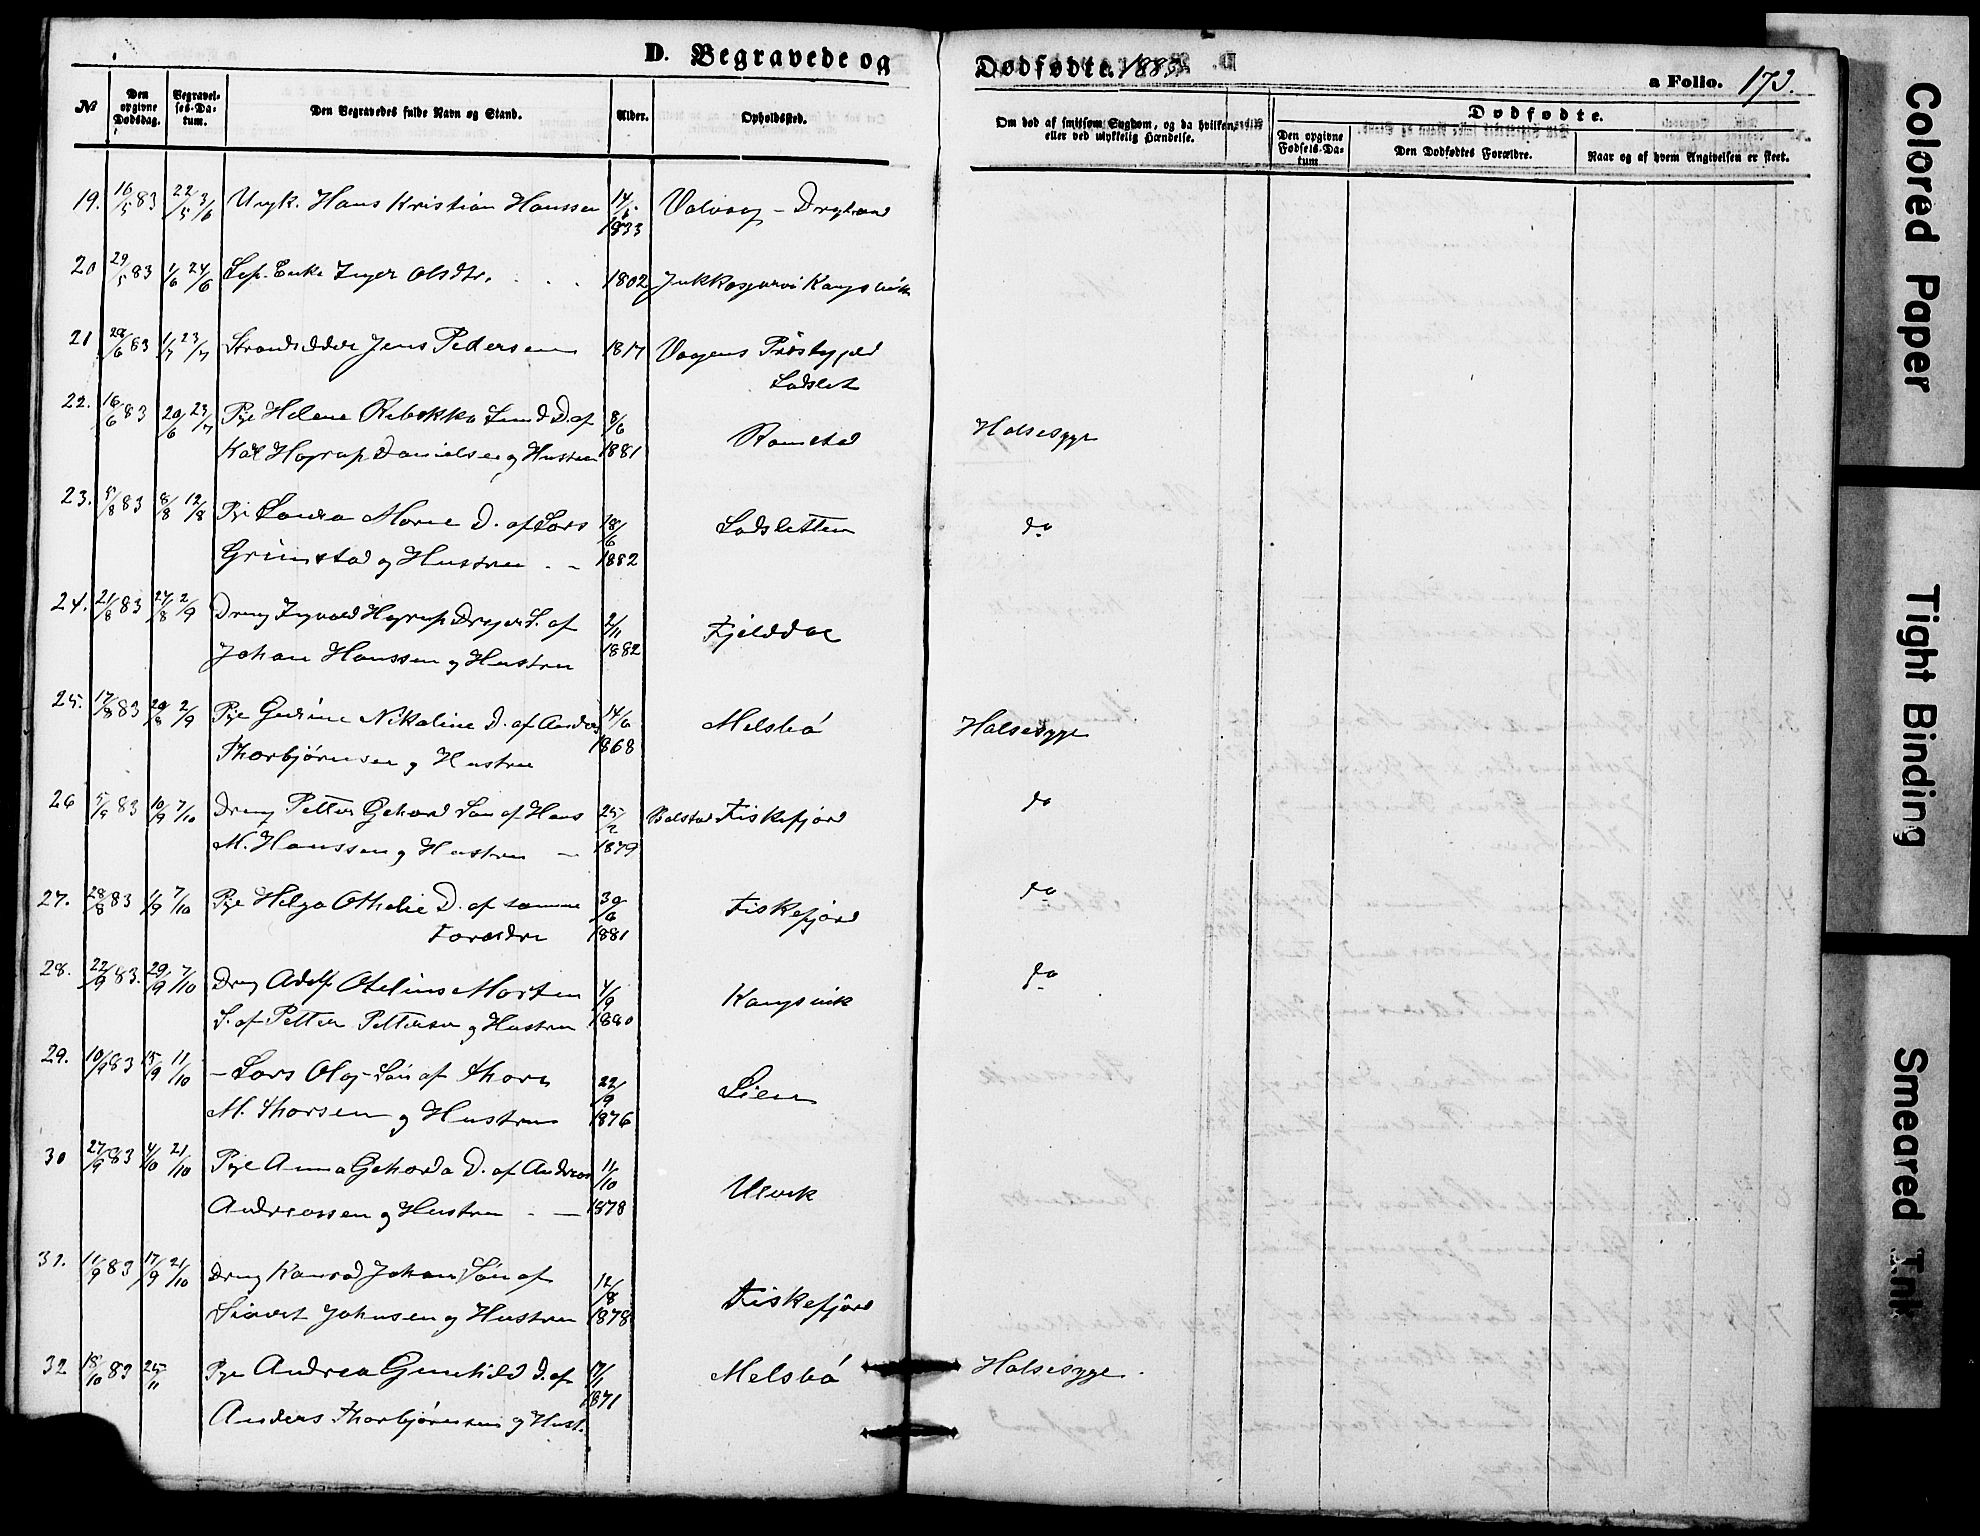 D. Begravede og Dødfødte. 1883.
a Folio. 173.
№
Den opgivne Dødsdag.
Begravelses-Datum.
Den Begravedes fulde Navn og Stand.
Alder.
Opholdssted.
Om død af smitsom Sygdom, og da hvilken, eller ved ulykkelig Hændelse.
Dødfødte.
Den opgivne Fødsels-Datum
Den Dødfødtes Forældre.
Naar og af hvem Angivelsen er skeet.
19. 16/5 83 22/5 3/6 Ungk. Hans Kristian Hanssen 14/6 1833
20 29/5 83 1/6 24/6 Lap. Enke Inger Olsdtr. 1802 Jukkasjarvi Kongsvik
21 29/6 83 1/7 23/7 Jens Pedersen 1817 Vogens
Sadslet
22. 16/6 83 20/6 23/7 Pge Helene Rebekka Lund D. af 8/6 Ramstad Halsesyge
Karl Hagrup Danielsen og Hustru 1881
23. 5/8 83 8/8 12/8 Pge Laura Marie D. af Lars 18/6 Sadsletten do
Grimstad og Hustru - 1882
24. 21/8 83 27/8 2/9 Dreng Ingvald Hagrup Dreyer S. af 2/11 Fjelddal
Johan Hanssen og Hustru 1882
25. 17/8 83 20/8 2/9 Pge Gurine Nikoline D. af Anders 14/6 Melsbø Halsesyge
Thorbjørnsen og Hustru 1868
26 5/9 83 10/9 7/10 Dreng Petter Gehard Søn af Hans 25/2 Balstad Fiskefjord do
M. Hanssen og Hustru - 1879
27. 28/8 83 1/9 7/10 Pge Helga Othelie D. af samme 30/6 Fiskefjord do
Forældre 1881
28. 22/9 83. 29/9 7/10 Dreng Adolf Otelius Morten 4/9 Kongsvik do
S. af Petter Pettersen og Hustru 1880
29. 10/9 83 15/9 11/10 - Lars Olaj Søn af Thore 22/9 Lien
M. Thorsen og Hustru 1876
30 27/9 83 4/10 21/10 Pge Anna Geharda D. af Andreas 11/10 Ulvik
Andreassen og Hustru - 1878
31. 11/9 83 17/9 21/10 Dreng Konrad Johan Søn af 12/8 Fiskefjord
Sivert Johnsen og Hustru 1878
32 18/10 83 25/11 Pge Andrea Gunhild D. af 17/1 1871 Melsbø Halsesyge.
Anders Thorbjørnsen og Hust.
Colored Paper
Tight Binding
Smeared Ink